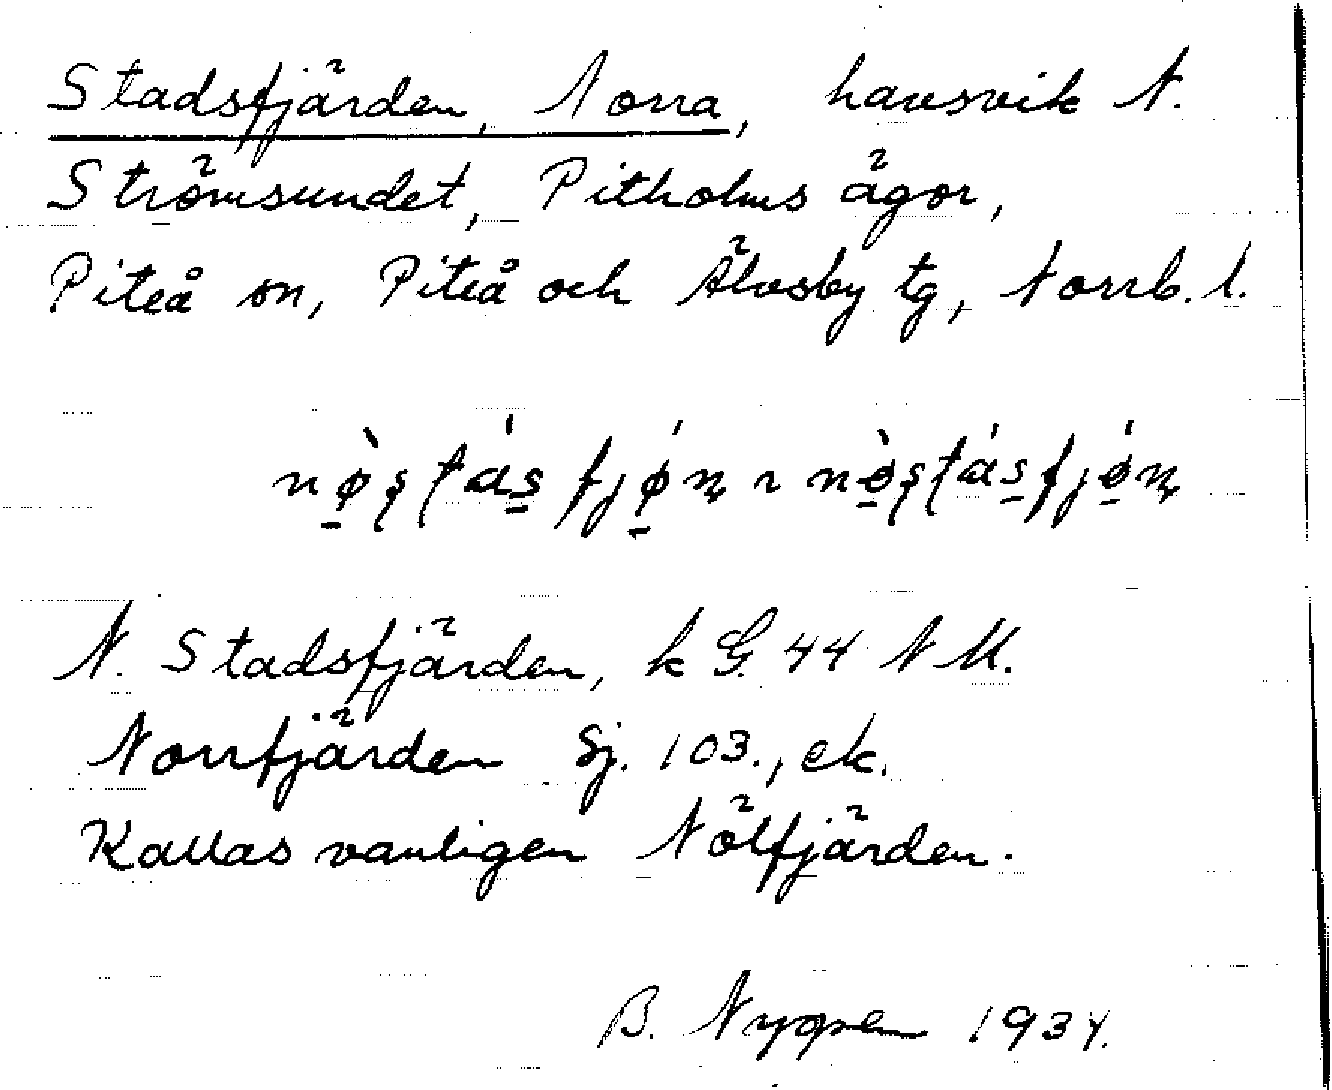 Stadsfjärden, Norra, havsvik N.
Strömsundet, Pitholms ägor,
Piteå sn, Piteå och Älvsby tg, Norrb. l.
N. Stadsfjärden, k G. 44 N M.
Norrfjärden Sj. 103., ek.
Kallas vanligen Nölfjärden.
B. Nygren 1934.